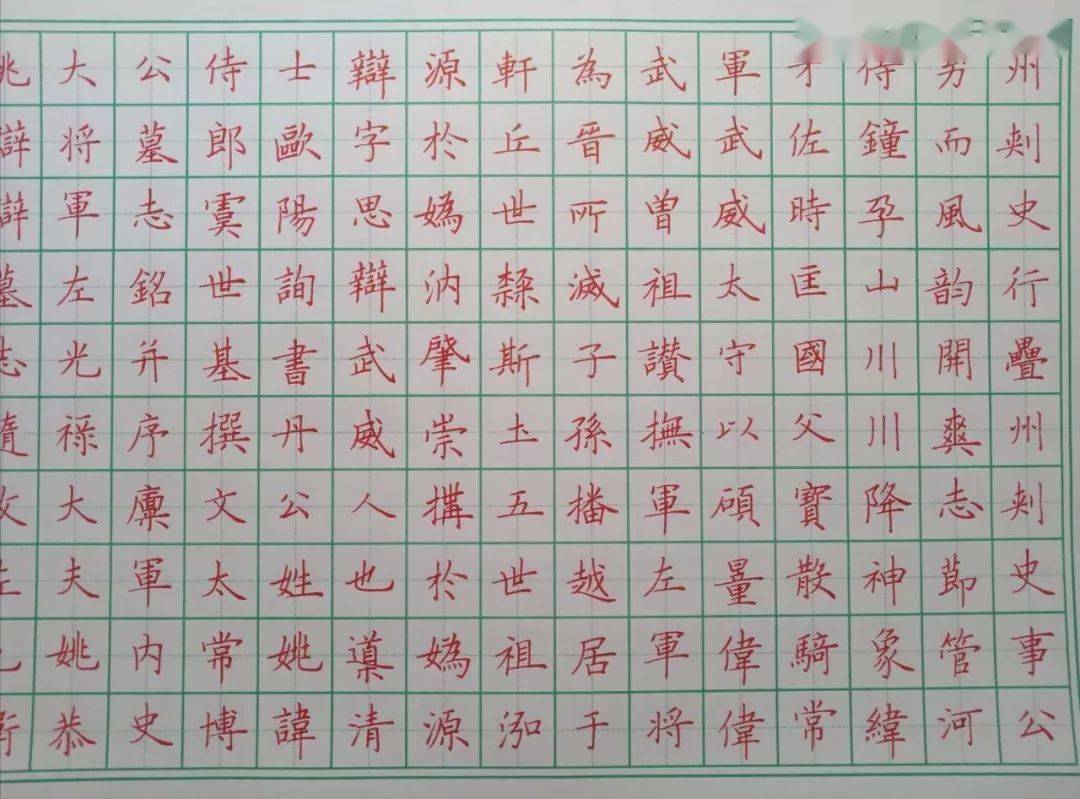 姚辯辯墓志隨故左
大将軍左光禄大夫姚恭
公墓志銘并序廩軍内史
侍郎虞世基撰文太常博
士歐陽詢書丹公姓姚諱
辯字思辯武威人也導清
源於媯汭肇崇搆於媯源
軒丘世斯土五世祖泓
為晉所滅子孫播越居于
武威曾祖讃撫軍左軍将
軍武威太守以碩量偉偉
才佐時匡國父寳散騎常
侍鐘孕山川川降神象緯
而風韵開爽志莭管河
州刾史行疊州刾史事公